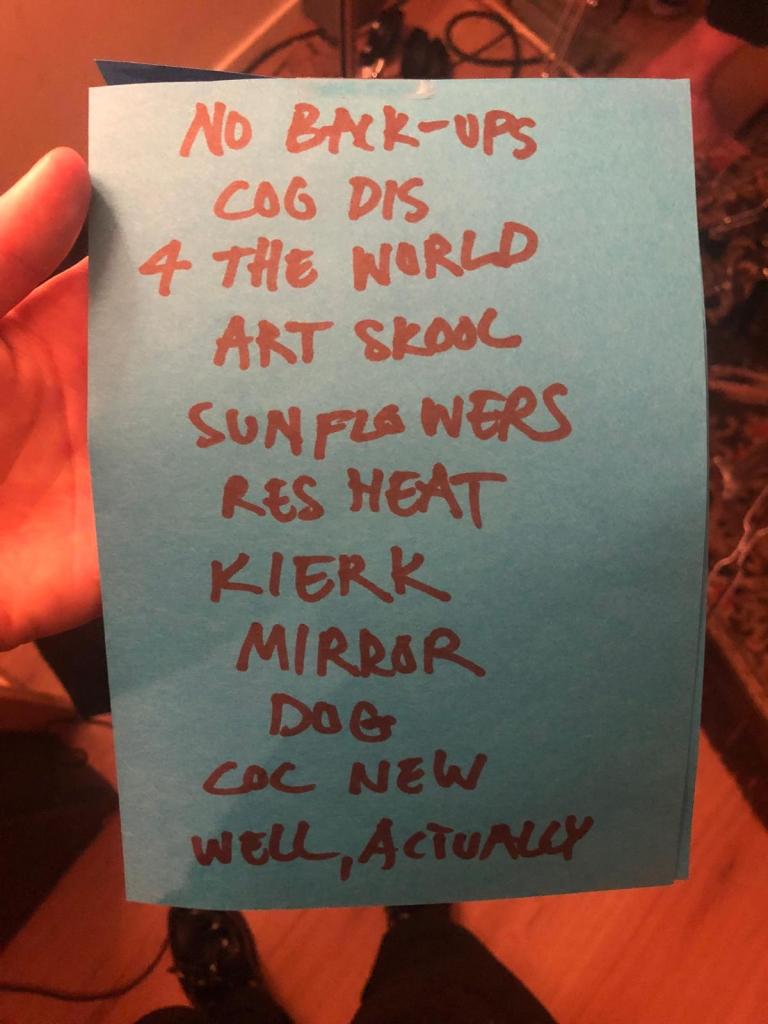 NO BACK-UPS
COG DIS
4 THE WORLD
ART SKOOL
SUNFLOWERS
RES HEAT
KIERK
MIRROR
DOG
COC NEW
WELL, ACTUALLY